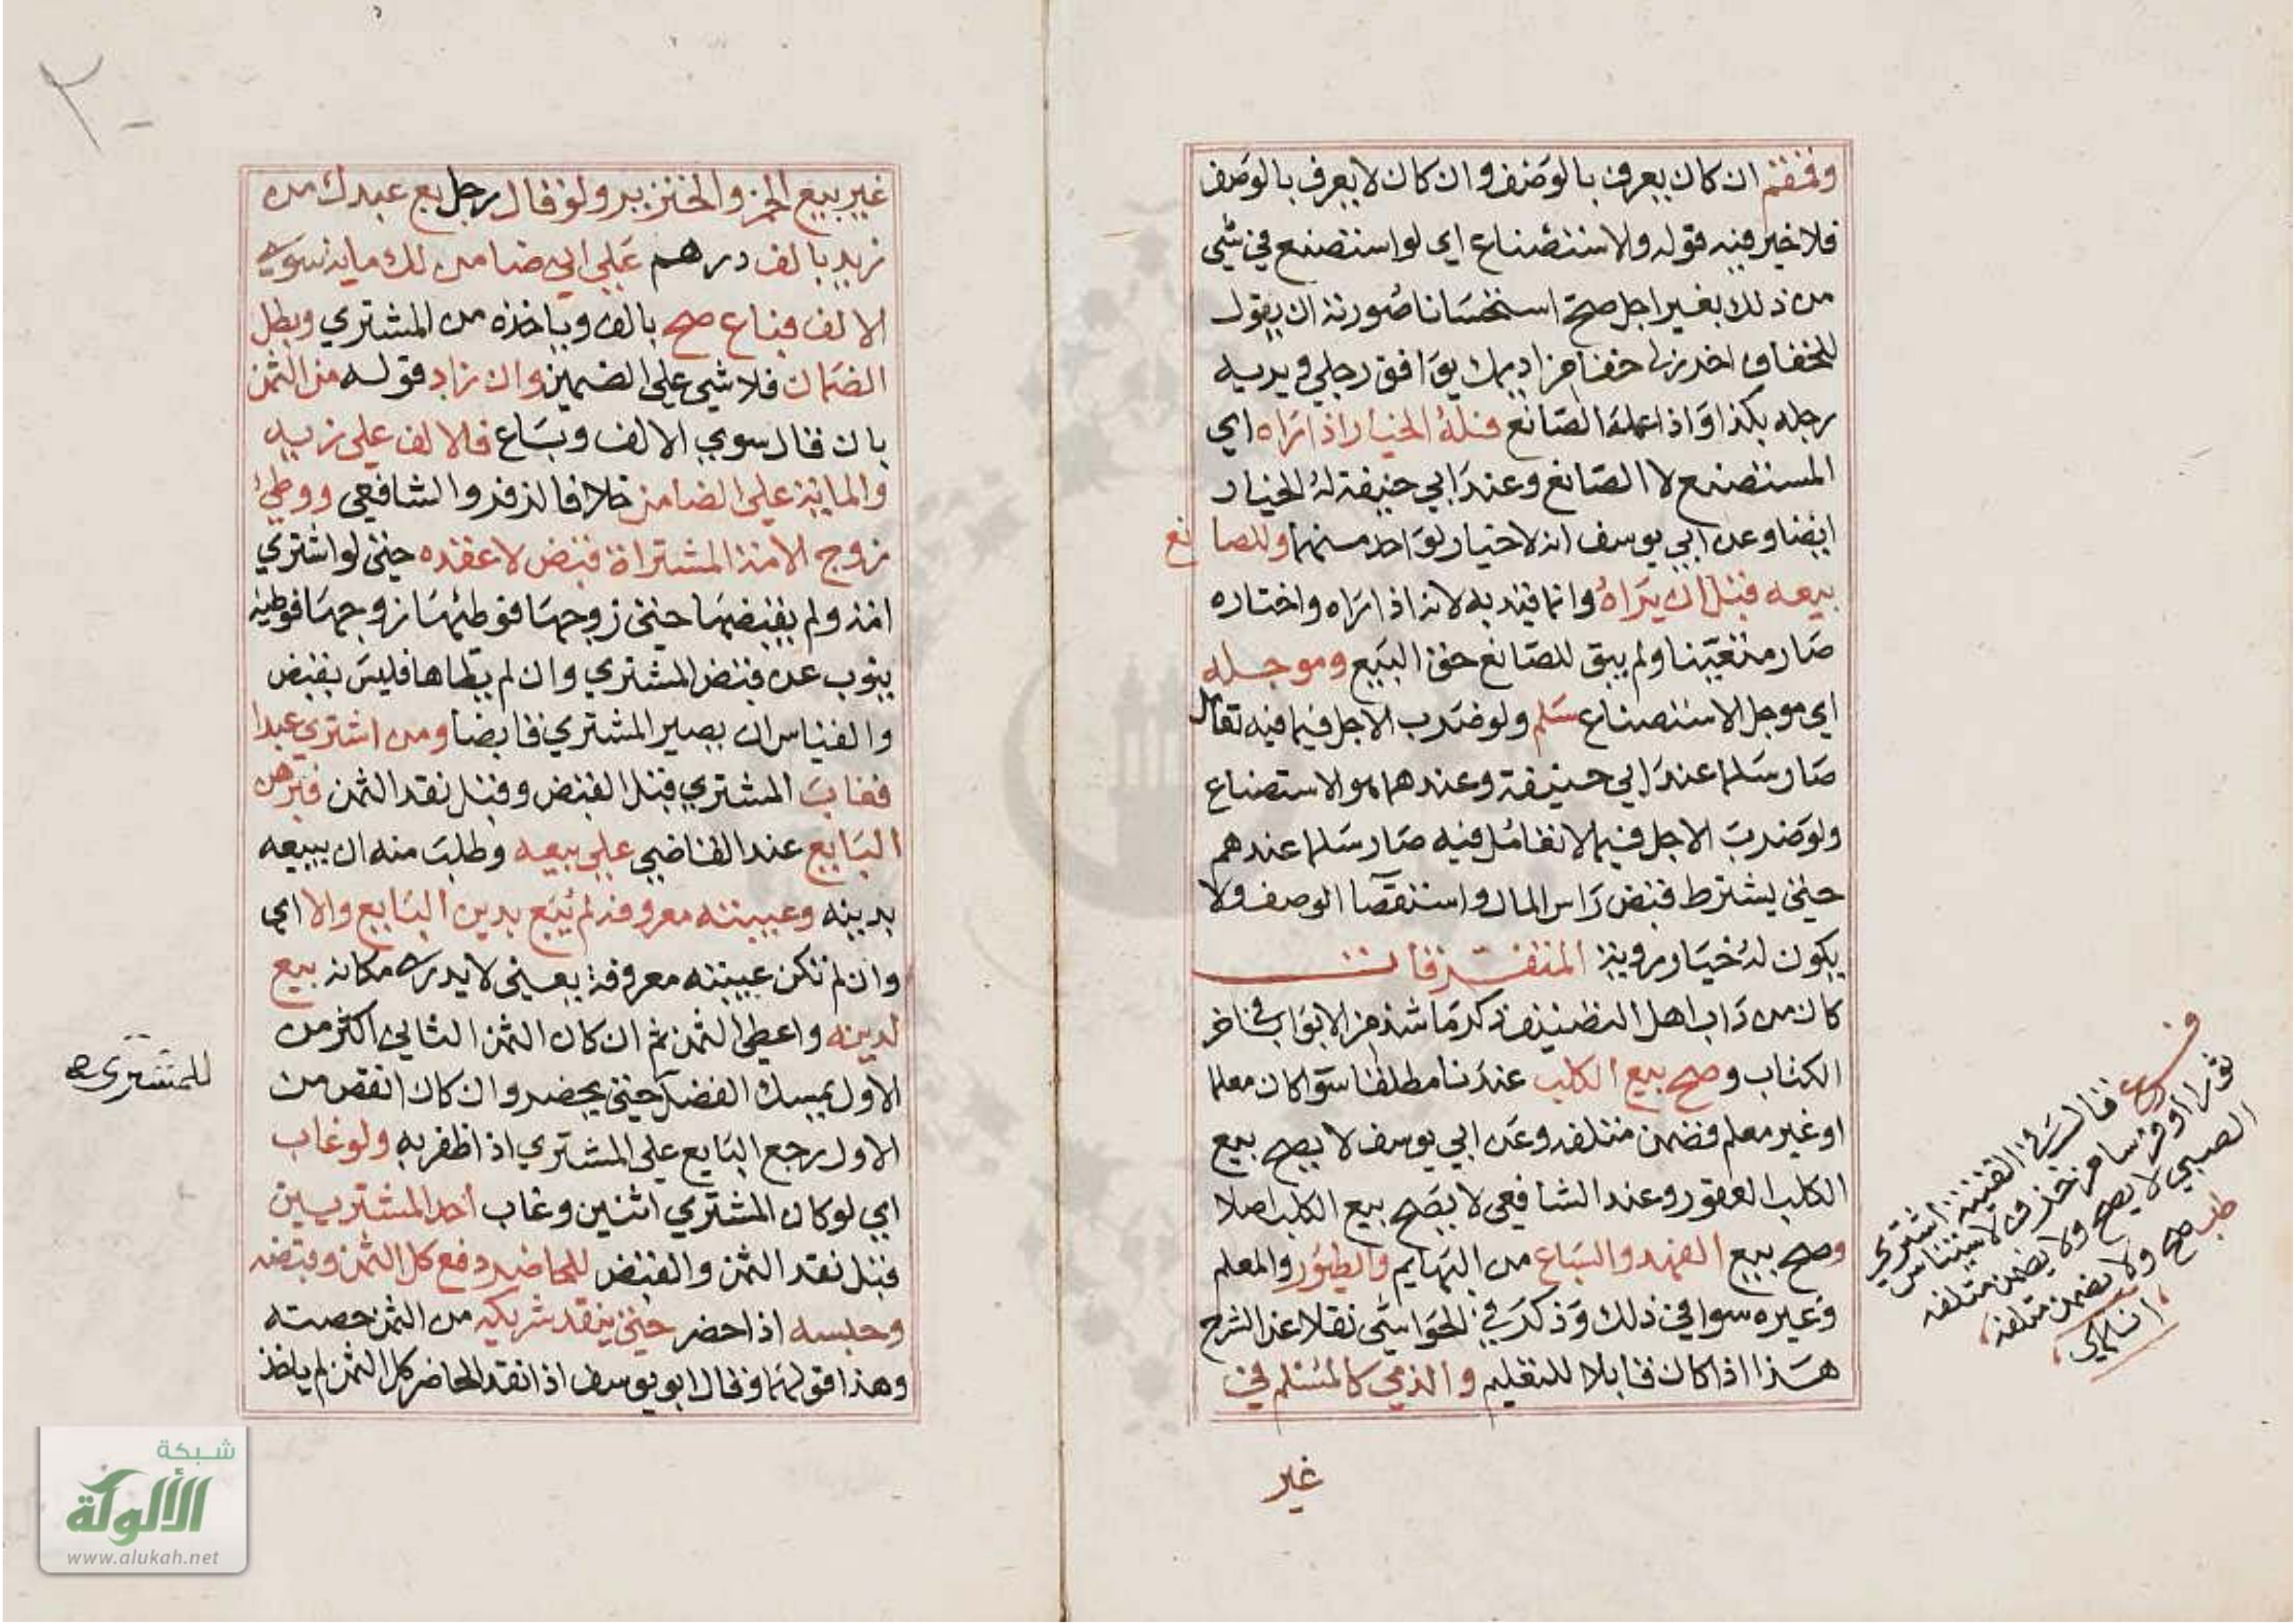 وقمقم ان كان يعرف بالوصف وان كان لا يعرف بالوصف
فلا خير فيه قوله ولاستصناع اي لو استصنع في شي
من ذلك بغير اجل صح استحسانا صورته ان يقول
للخفاف اخرز لي خفا من اديمك يوافق رجلي ويريه
رجله بكذا واذا عمله الصانع فله الخيار اذا راه اي
المستصنع لا الصانع وعند ابي حنيفة له الخيار
ايضا وعن ابي يوسف انه لا خيار لواحد منهما وللصانع
بيعه قبل ان يراه وانما قيد به لانه اذا راه واختاره
صار متعينا ولم يبق للصانع حق البيع وموجله
اي موجل الاستصناع سلم ولو ضرب الاجل فيما فيه تعامل
صار سلما عند ابي حنيفة وعندهما هو الاستصناع
ولو ضرب الاجل فيما لا تعامل فيه صار سلما عندهم
حتى يشترط قبض راس المال واستقصا الوصف ولا
يكون له خيار روية المتفرقات
كان من داب اهل التصنيف ذكر ما شذ من الابواب في اخر
الكتاب وصح بيع الكلب عندنا مطلقا سوا كان معلما
او غير معلم فضمن متلفه وعن ابي يوسف لا يصح بيع
الكلب العقور وعند الشافعي لا يصح بيع الكلب اصلا
وصح بيع الفهد والسباع من البهايم والطيور والمعلم
وغيره سوا في ذلك وذكر في الحواشي نقلا عن الشرح
هذا اذا كان قابلا للتعليم والذمي كالمسلم في
غير
فرع قال في القنية اشترى
ثورا او فرسا من خزف لاستيناس
الصبي لا يصح ولا يضمن متلفه
طب صح ولا يضمن متلفه
٢٠
غير بيع الخمر والخنزير ولو قال رجل بع عبدك من
زيد بالف درهم على اني ضامن لك ماية سوى
الالف فباع صح بالف وياخذه من المشتري وبطل
الضمان فلا شي على الضمين وان زاد قوله من الثمن
بان قال سوي الالف وباع فالالف على زيد
والماية على الضامن خلافا لزفر والشافعي ووطئ
زوج الامة المشتراة قبض لا عقده حتى لو اشتري
امة ولم يقبضها حتى زوجها فوطئها زوجها فوطيه
ينوب عن قبض المشتري وان لم يطاها فليس بقبض
والقياس ان يصير المشتري قابضا ومن اشتري عبدا
فغاب المشتري قبل القبض وقبل نقد الثمن فبرهن
البايع عند القاضي على بيعه وطلب منه ان يبيعه
بدينه وغيبته معروفة لم يبع بدين البايع والا اي
وان لم تكن غيبته معروفة يعني لا يدرى مكانه بيع
لدينه واعطى الثمن ثم ان كان الثمن الثاني اكثر من
الاول يمسك الفضل حتى يحضر وان كان انقص من
للمشتري صح
الاول رجع البايع على المشتري اذا ظفر به ولو غاب
اي لو كان المشتري اثنين وغاب احد المشتريين
قبل نقد الثمن والقبض للحاضر دفع كل الثمن وقبضه
وحبسه اذا حضر حتى ينقد شريكه من الثمن حصته
وهذا قولهما وقال ابو يوسف اذا نقد الحاضر كل الثمن لم ياخذ
شبكة
الألوكة
www.alukah.net